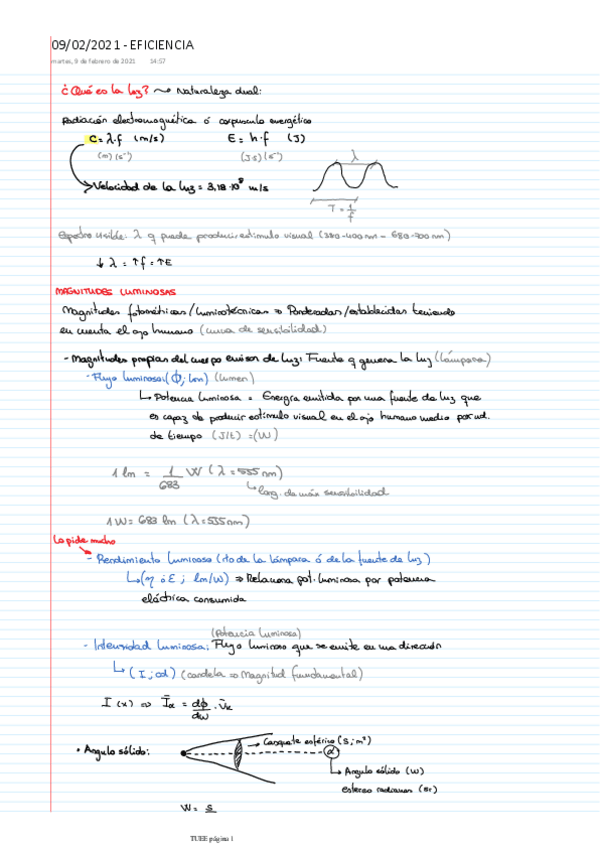 09/02/2021 - EFICIENCIA
martes, 9 de febrero de 2021 14:57
¿Qué es la luz? ⤳ Naturaleza dual:
Radiación electromagnética ó corpúsculo energético
C = λ·f (m/s) E = h·f (J)
(m) (s⁻¹) (Js) (s⁻¹)
λ
Velocidad de la luz = 3,18·10⁸ m/s
T = 1/f
Espectro visible: λ q puede producir estímulo visual (380-400 nm - 680-700 nm)
↓λ = ↑f = ↑E
MAGNITUDES LUMINOSAS
Magnitudes fotométricas/lumicotécnicas ⇒ Ponderadas/establecidas teniendo
en cuenta el ojo humano (curva de sensibilidad)
- Magnitudes propias del cuerpo emisor de luz: Fuente q genera la luz (lámpara)
- Flujo luminoso: (Φ; lm) (lumen)
↳ Potencia luminosa = Energía emitida por una fuente de luz que
es capaz de producir estímulo visual en el ojo humano medio por ud.
de tiempo (J/t) = (W)
1 lm = 1/683 W (λ = 555 nm)
↳ long. de máx sensibilidad
1 W = 683 lm (λ = 555 nm)
Lo pide mucho
- Rendimiento luminoso (rto de la lámpara ó de la fuente de luz)
↳ (η ó E; lm/W) ⇒ Relaciona pot. luminosa por potencia
eléctrica consumida
(Potencia luminosa)
- Intensidad luminosa: Flujo luminoso que se emite en una dirección
↳ (I; cd) (candela ⇒ Magnitud fundamental)
I (x) ⇒ I̅α = dΦ/dω · v̅x
• Angulo sólido:
Casquete esférico (S; m²)
α
↳ Angulo sólido (W)
estereo radianes (sr)
W = S
TUEE página 1